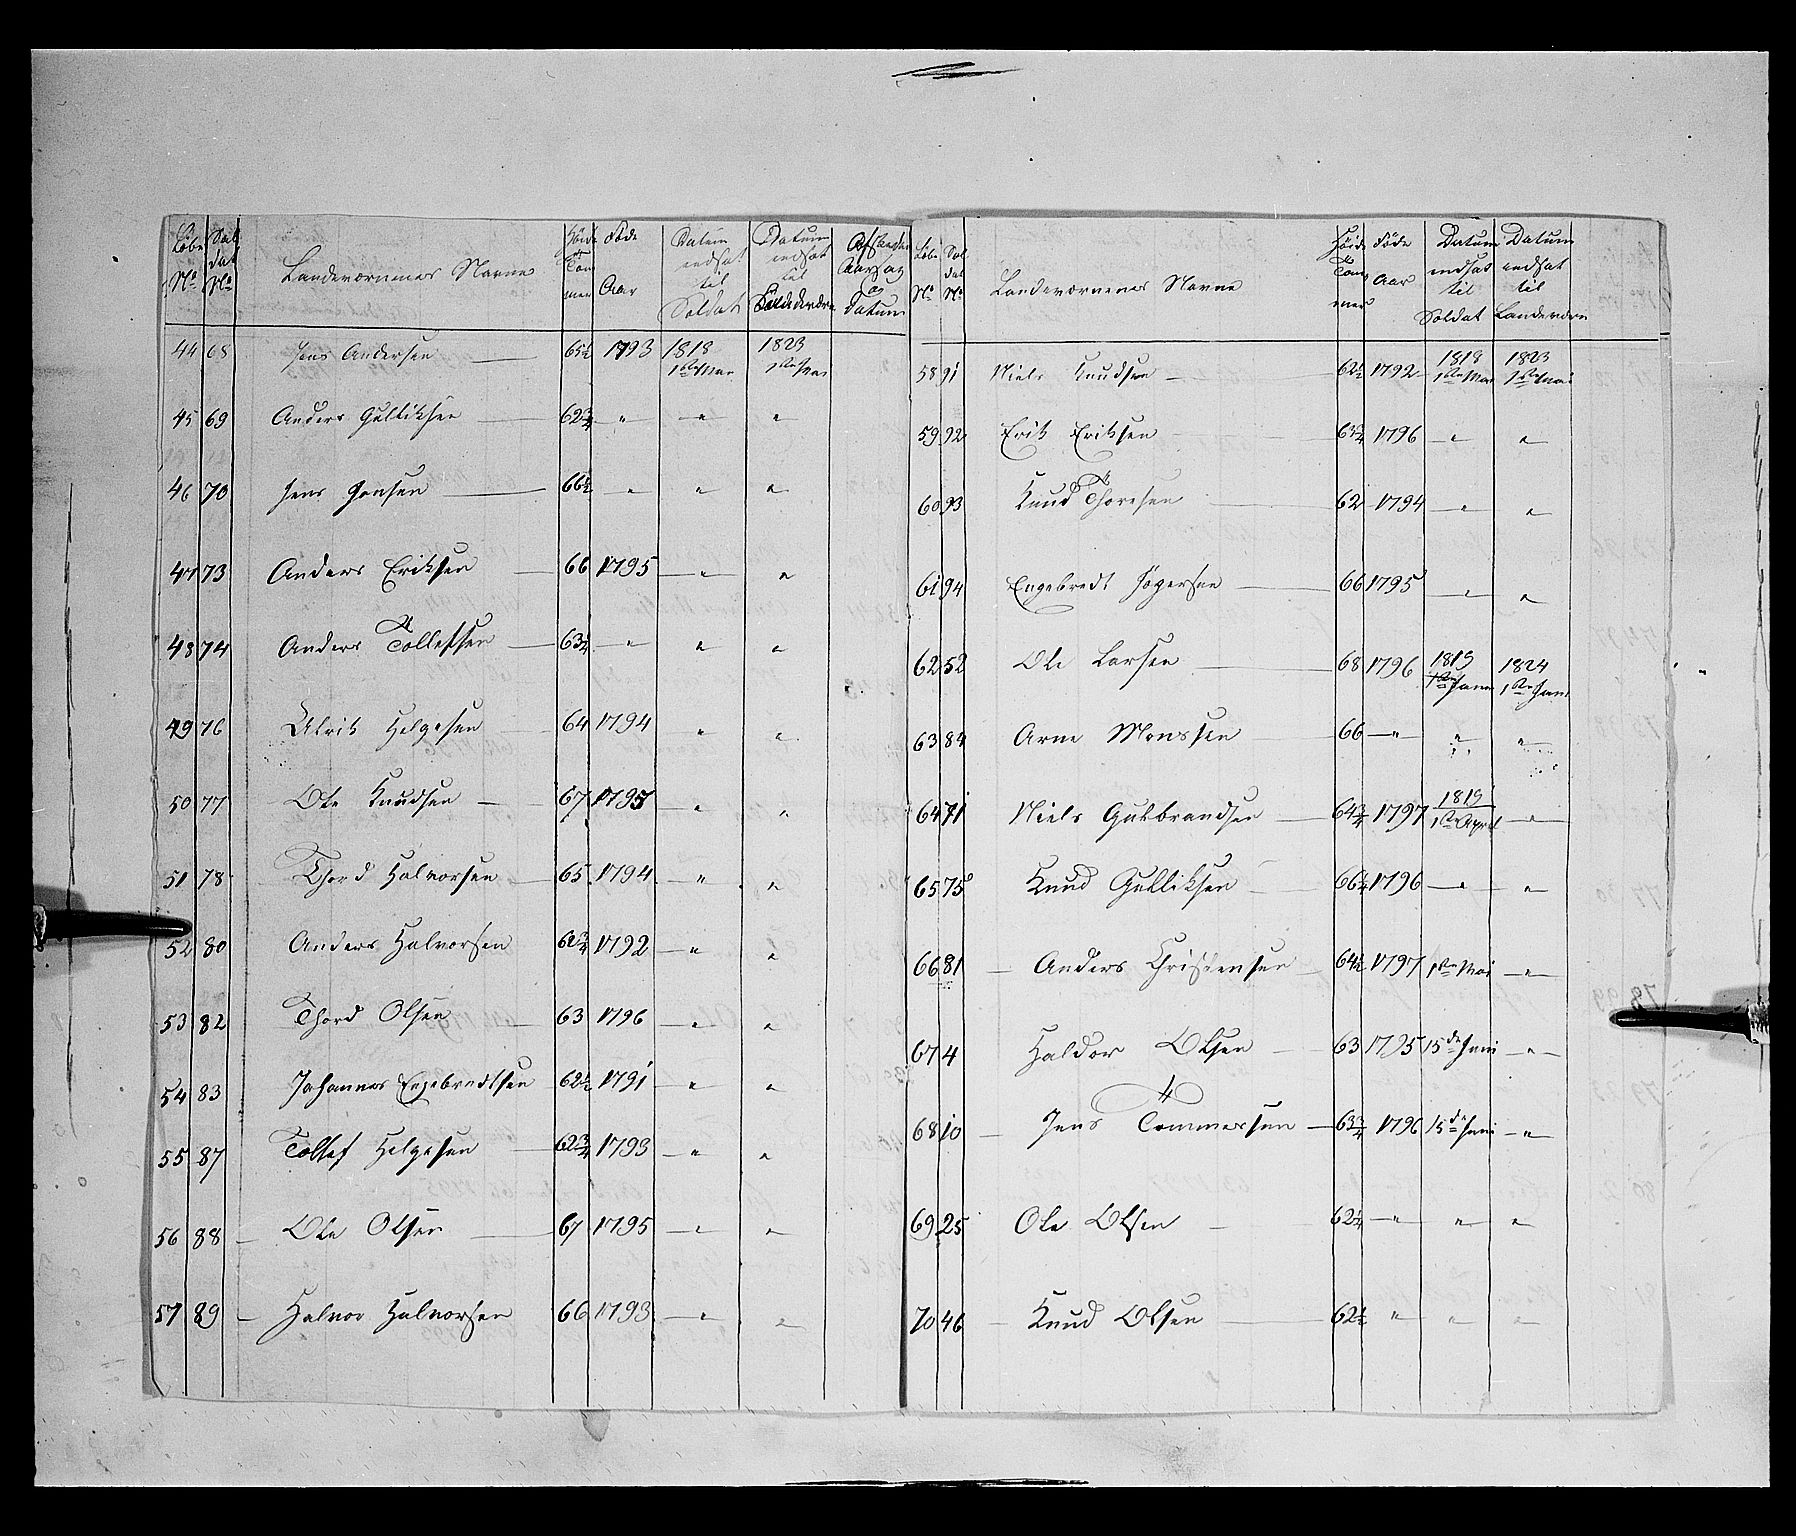 Løbe No | Soldat No | Landeværnenes Navne | Høide Tommer | Føde Aar | Datum indsat til Soldat | Datum indsat til Landeværn | Afskeeds Aarsag og Datum
44 68 Jens Andersen 65½ 1793 1818 1ste Mai 1823 1ste Mai
45 69 Anders Gulliksen 62¾ " " "
46 70 Jens Jonsen 66½ " " "
47 73 Anders Eriksen 66 1795 " "
48 74 Anders Tollefsen 63¼ " " "
49 76 Ulrik Helgesen 64 1794 " "
50 77 Ole Knudsen 67 1795 " "
51 78 Thord Halvorsen 65 1794 " "
52 80 Anders Halvorsen 62¾ 1792 " "
53 82 Thord Olsen 63 1796 " "
54 83 Johannes Engebredtsen 62½ 1791 " "
55 87 Tollef Helgesen 62¾ 1793 " "
56 88 Ole Olsen 67 1795 " "
57 89 Halvor Halvorsen 66 1793 " "
Løbe No | Soldat No | Landeværnenes Navne | Høide Tommer | Føde Aar | Datum indsat til Soldat | Datum indsat til Landeværn
58 91 Niels Knudsen 62½ 1792 1818 1ste Mai 1823 1ste Mai
59 92 Erik Eriksen 63¾ 1796 " "
60 93 Knud Thoresen 62 1794 " "
61 94 Engebredt 66 1795 " "
62 52 Ole Larsen 68 1796 1819 1ste Janu 1824 1ste Janu
63 84 Arne Monssen 66 " " "
64 71 Niels Gulbrandsen 64¾ 1797 1819 1ste April "
65 75 Knud Gulliksen 66¼ 1796 " "
66 81 Anders Christensen 64½ 1797 1ste Mai "
67 4 Haldor Olsen 63 1795 15de Juni "
68 10 Jens Tommersen 63¾ 1796 15de Juni "
69 25 Ole Olsen 62¼ " " "
70 46 Knud Olsen 62½ " " "